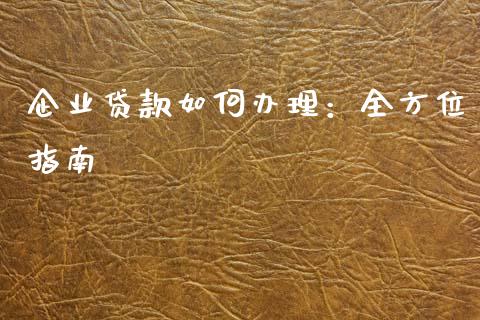 企业贷款如何办理：全方位
指南